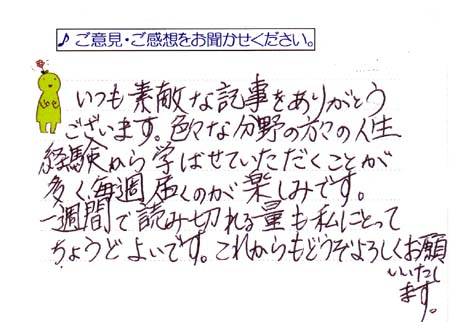 ♪ご意見・ご感想をお聞かせください。
いつも素敵な記事をありがとう
ございます。色々な分野の方々の人生
経験から学ばせていただくことが
多く、毎週届くのが楽しみです。
一週間で読み切れる量も私にとって
ちょうどよいです。これからもどうぞよろしくお願
いいたし
ます。